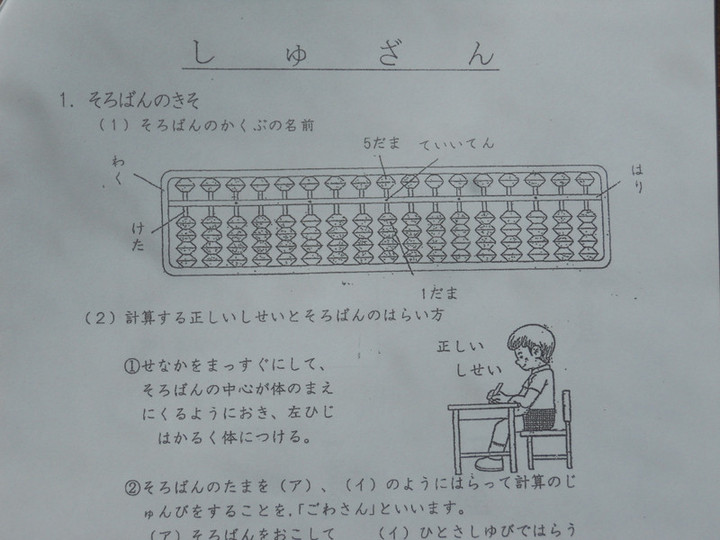 しゅざん
1. そろばんのきそ
(1)そろばんのかくぶの名前
5だま ていいてん
わく
はり
けた
1だま
(2)計算する正しいしせいとそろばんのはらい方
正しい
しせい
①せなかをまっすぐにして、
そろばんの中心が体のまえ
にくるようにおき、左ひじ
はかるく体につける。
②そろばんのたまを(ア)、(イ)のようにはらって計算のじ
ゅんびをすることを,「ごわさん」といいます。
(ア)そろばんをおこして (イ)ひとさしゆびではらう